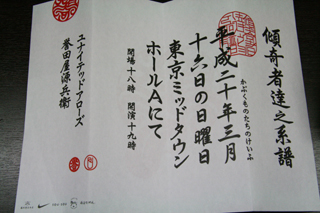 傾奇者達之系譜
かぶくものたちのけいふ
平成二十年三月
十六日の日曜日
東京ミッドタウン
ホールAにて
開場十八時 開演十九時
ユナイテッドアローズ
誉田屋源兵衛